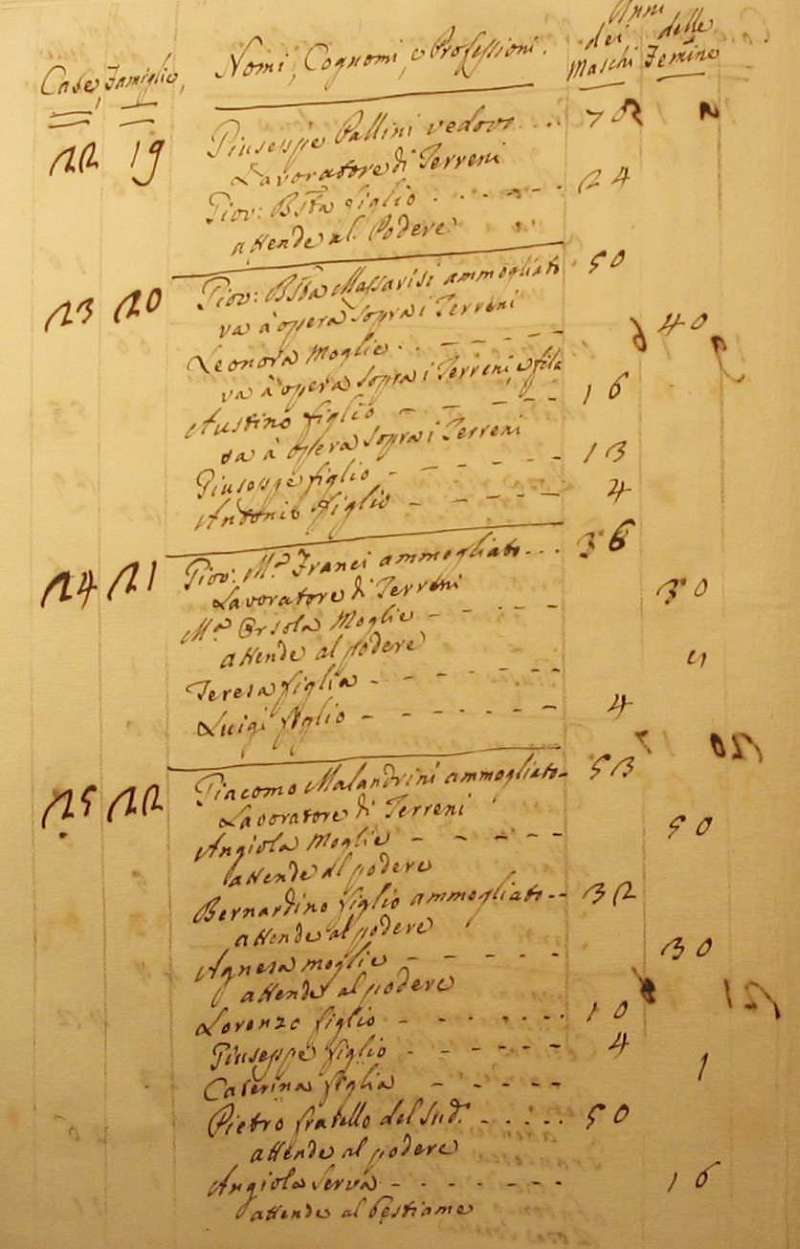 Anni
Case, Famiglie, Nomi, Cognomi, e Professioni. dei Maschi delle Femine
22 19 Giuseppe Pallini vedovo ... 70
Lavoratore di Terreni
Giov: Bsta figlio . . . . - - . 24
attende al Podere
23 20 Giov: Bsta Massarisi ammogliato 50
va à opera sopra i Terreni
Leonora Moglie . . - - - - - 40
va à opera sopra i Terreni, e fila
Austino figlio - - - - - 16
va à opera sopra i Terreni
Giuseppe figlio - - - - - - 13
Antonio figlio - - - - - 4
24 21 Giov: Ma. Franci ammogliato... 36
Lavoratore di Terreni
Ma. Orsola Moglie - - - - - 30
attende al podere
Teresa figlia - - - - - - -
Luigi figlio - - - - - - 4
25 22 Giacomo Malandrini ammogliato- 53
Lavoratore di Terreni
Angiola Moglie - - - - - 50
attende al podere
Bernardino figlio ammogliato-- 32
attende al podere
Agnesa moglie - - - - - 30
attende al podere
Lorenzo figlio - - - - - - . 10
Giuseppe figlio - - - - - - 4
Caterina figlia - - - - 1
Pietro fratello del Sud.o - - - - . 50
attende al podere
Angiola Serva - - - - - - - 16
attende al bestiame